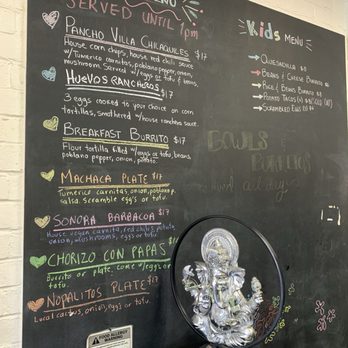 MENU
SERVED UNTIL 1pm
PANCHO VILLA CHILAQUILES $17
House corn chips, house red chili sauce
w/Tumerico carnitas, poblano pepper, onion,
mushroom. Served w/eggs or tofu & beans
HUEVOS RANCHEROS $17
3 eggs cooked to your choice on corn
tortillas, smothered w/ house ranchera sauce.
BREAKFAST BURRITO $
Flour tortilla filled w/eggs or tofu, beans,
poblano pepper, onion, potato.
MACHACA PLATE $17
Tumerico carnitas, onion, poblano p.
salsa, scramble eggs or tofu.
SONORA BARBACOA $17
House vegan carnita, red chili, potato,
onion, mushrooms, eggs or tofu.
CHORIZO CON PAPAS $17
Burrito or plate, come w/eggs or
tofu.
NOPALITOS PLATE $17
Local cactus, onion, eggs or tofu.
Kids MENU
→ QUESADILLA
→ BEANS & CHEESE BURRITO
→ RICE / BEANS BURRITO
→ POTATO TACOS
→ SCRAMBLED EGGS
BOWLS
BURRITOS
all day